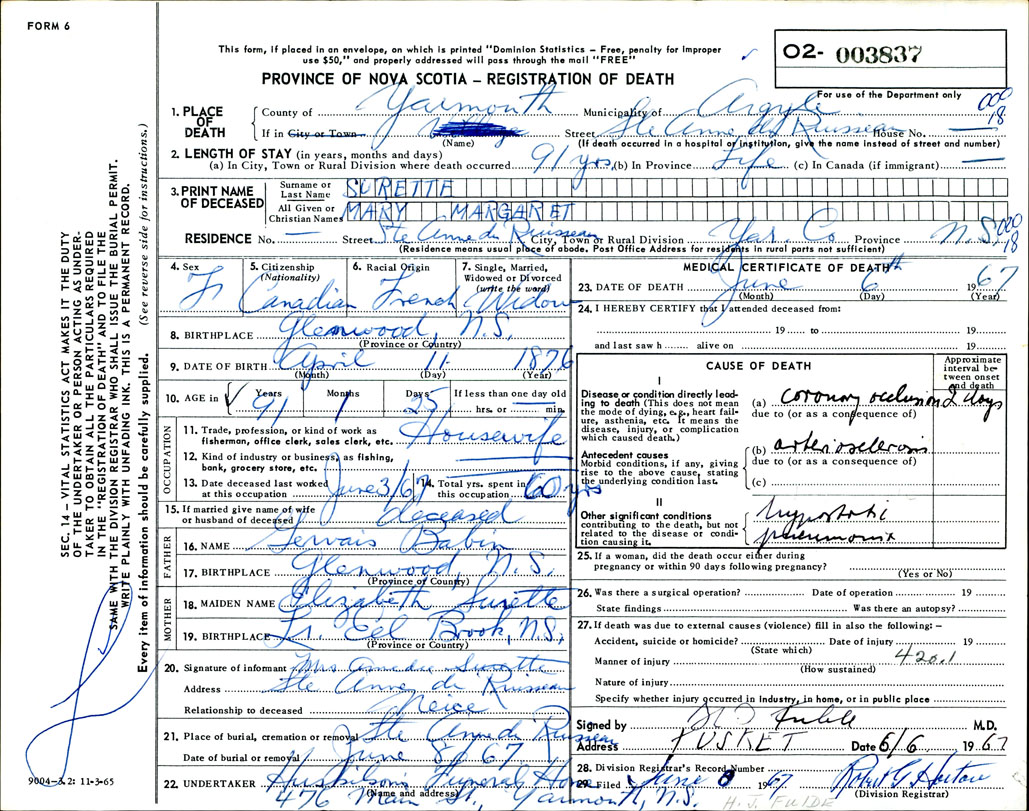 FORM 6
This form, if placed in an envelope, on which is printed "Dominion Statistics – Free, penalty for improper
use $50," and properly addressed will pass through the mail "FREE"
PROVINCE OF NOVA SCOTIA – REGISTRATION OF DEATH
02- 003837
For use of the Department only
000
18
1. PLACE OF DEATH
County of Yarmouth Municipality of Argyle
If in City or Town Street Ste Anne du Ruisseau House No. —
(Name) (If death occurred in a hospital or institution, give the name instead of street and number)
2. LENGTH OF STAY (in years, months and days)
(a) In City, Town or Rural Division where death occurred 91 yrs (b) In Province Life (c) In Canada (if immigrant) —
3. PRINT NAME OF DECEASED
Surname or Last Name SURETTE
All Given or Christian Names MARY MARGARET
RESIDENCE No. — Street Ste Anne du Ruisseau City, Town or Rural Division Yar. Co. Province N.S. 000
18
(Residence means usual place of abode. Post Office Address for residents in rural parts not sufficient)
4. Sex F.
5. Citizenship (Nationality) Canadian
6. Racial Origin French
7. Single, Married, Widowed or Divorced (write the word) Widow
8. BIRTHPLACE Glenwood, N.S.
(Province or Country)
9. DATE OF BIRTH April 11 1876
(Month) (Day) (Year)
10. AGE in Years 91 Months 1 Days 25 If less than one day old — hrs. or min.
OCCUPATION
11. Trade, profession, or kind of work as fisherman, office clerk, sales clerk, etc. Housewife
12. Kind of industry or business, as fishing, bank, grocery store, etc.
13. Date deceased last worked at this occupation June 3/67
14. Total yrs. spent in this occupation 60 yrs
15. If married give name of wife or husband of deceased deceased
FATHER
16. NAME Gervais Babin
17. BIRTHPLACE Glenwood, N.S.
(Province or Country)
MOTHER
18. MAIDEN NAME Elizabeth Surette
19. BIRTHPLACE Eel Brook, N.S.
(Province or Country)
20. Signature of informant Mrs Amedee Surette
Address Ste Anne du Ruisseau
Relationship to deceased Neice
21. Place of burial, cremation or removal Ste Anne du Ruisseau
Date of burial or removal June 8/67
22. UNDERTAKER Huskilson Funeral Home
(Name and address) 476 Main St., Yarmouth, N.S.
MEDICAL CERTIFICATE OF DEATH
23. DATE OF DEATH June 6th 1967
(Month) (Day) (Year)
24. I HEREBY CERTIFY that I attended deceased from:
19 to 19
and last saw h alive on 19
CAUSE OF DEATH
Approximate interval between onset and death
I
Disease or condition directly leading to death (This does not mean the mode of dying, e.g., heart failure, asthenia, etc. It means the disease, injury, or complication which caused death.)
(a) coronary occlusion 2 days
due to (or as a consequence of)
Antecedent causes
Morbid conditions, if any, giving rise to the above cause, stating the underlying condition last.
(b) arteriosclerosis
due to (or as a consequence of)
(c)
II
Other significant conditions contributing to the death, but not related to the disease or condition causing it.
hypostatic
pneumonia
25. If a woman, did the death occur either during
pregnancy or within 90 days following pregnancy?
(Yes or No)
26. Was there a surgical operation? Date of operation 19
State findings Was there an autopsy?
27. If death was due to external causes (violence) fill in also the following: –
Accident, suicide or homicide? Date of injury 19
(State which)
Manner of injury 420.1
(How sustained)
Nature of injury
Specify whether injury occurred in Industry, in home, or in public place
Signed by M.D.
Address TUSKET Date 6/6 1967
28. Division Registrar's Record Number
29. Filed June 8 1967
(Division Registrar)
H. J. FULDE
SEC. 14 – VITAL STATISTICS ACT MAKES IT THE DUTY
OF THE UNDERTAKER OR PERSON ACTING AS UNDER-
TAKER TO OBTAIN ALL THE PARTICULARS REQUIRED
IN THE "REGISTRATION OF DEATH" AND TO FILE THE
SAME WITH THE DIVISION REGISTRAR WHO SHALL ISSUE THE BURIAL PERMIT.
WRITE PLAINLY WITH UNFADING INK. THIS IS A PERMANENT RECORD.
Every item of information should be carefully supplied. (See reverse side for instructions.)
9004-3.2: 11-3-65